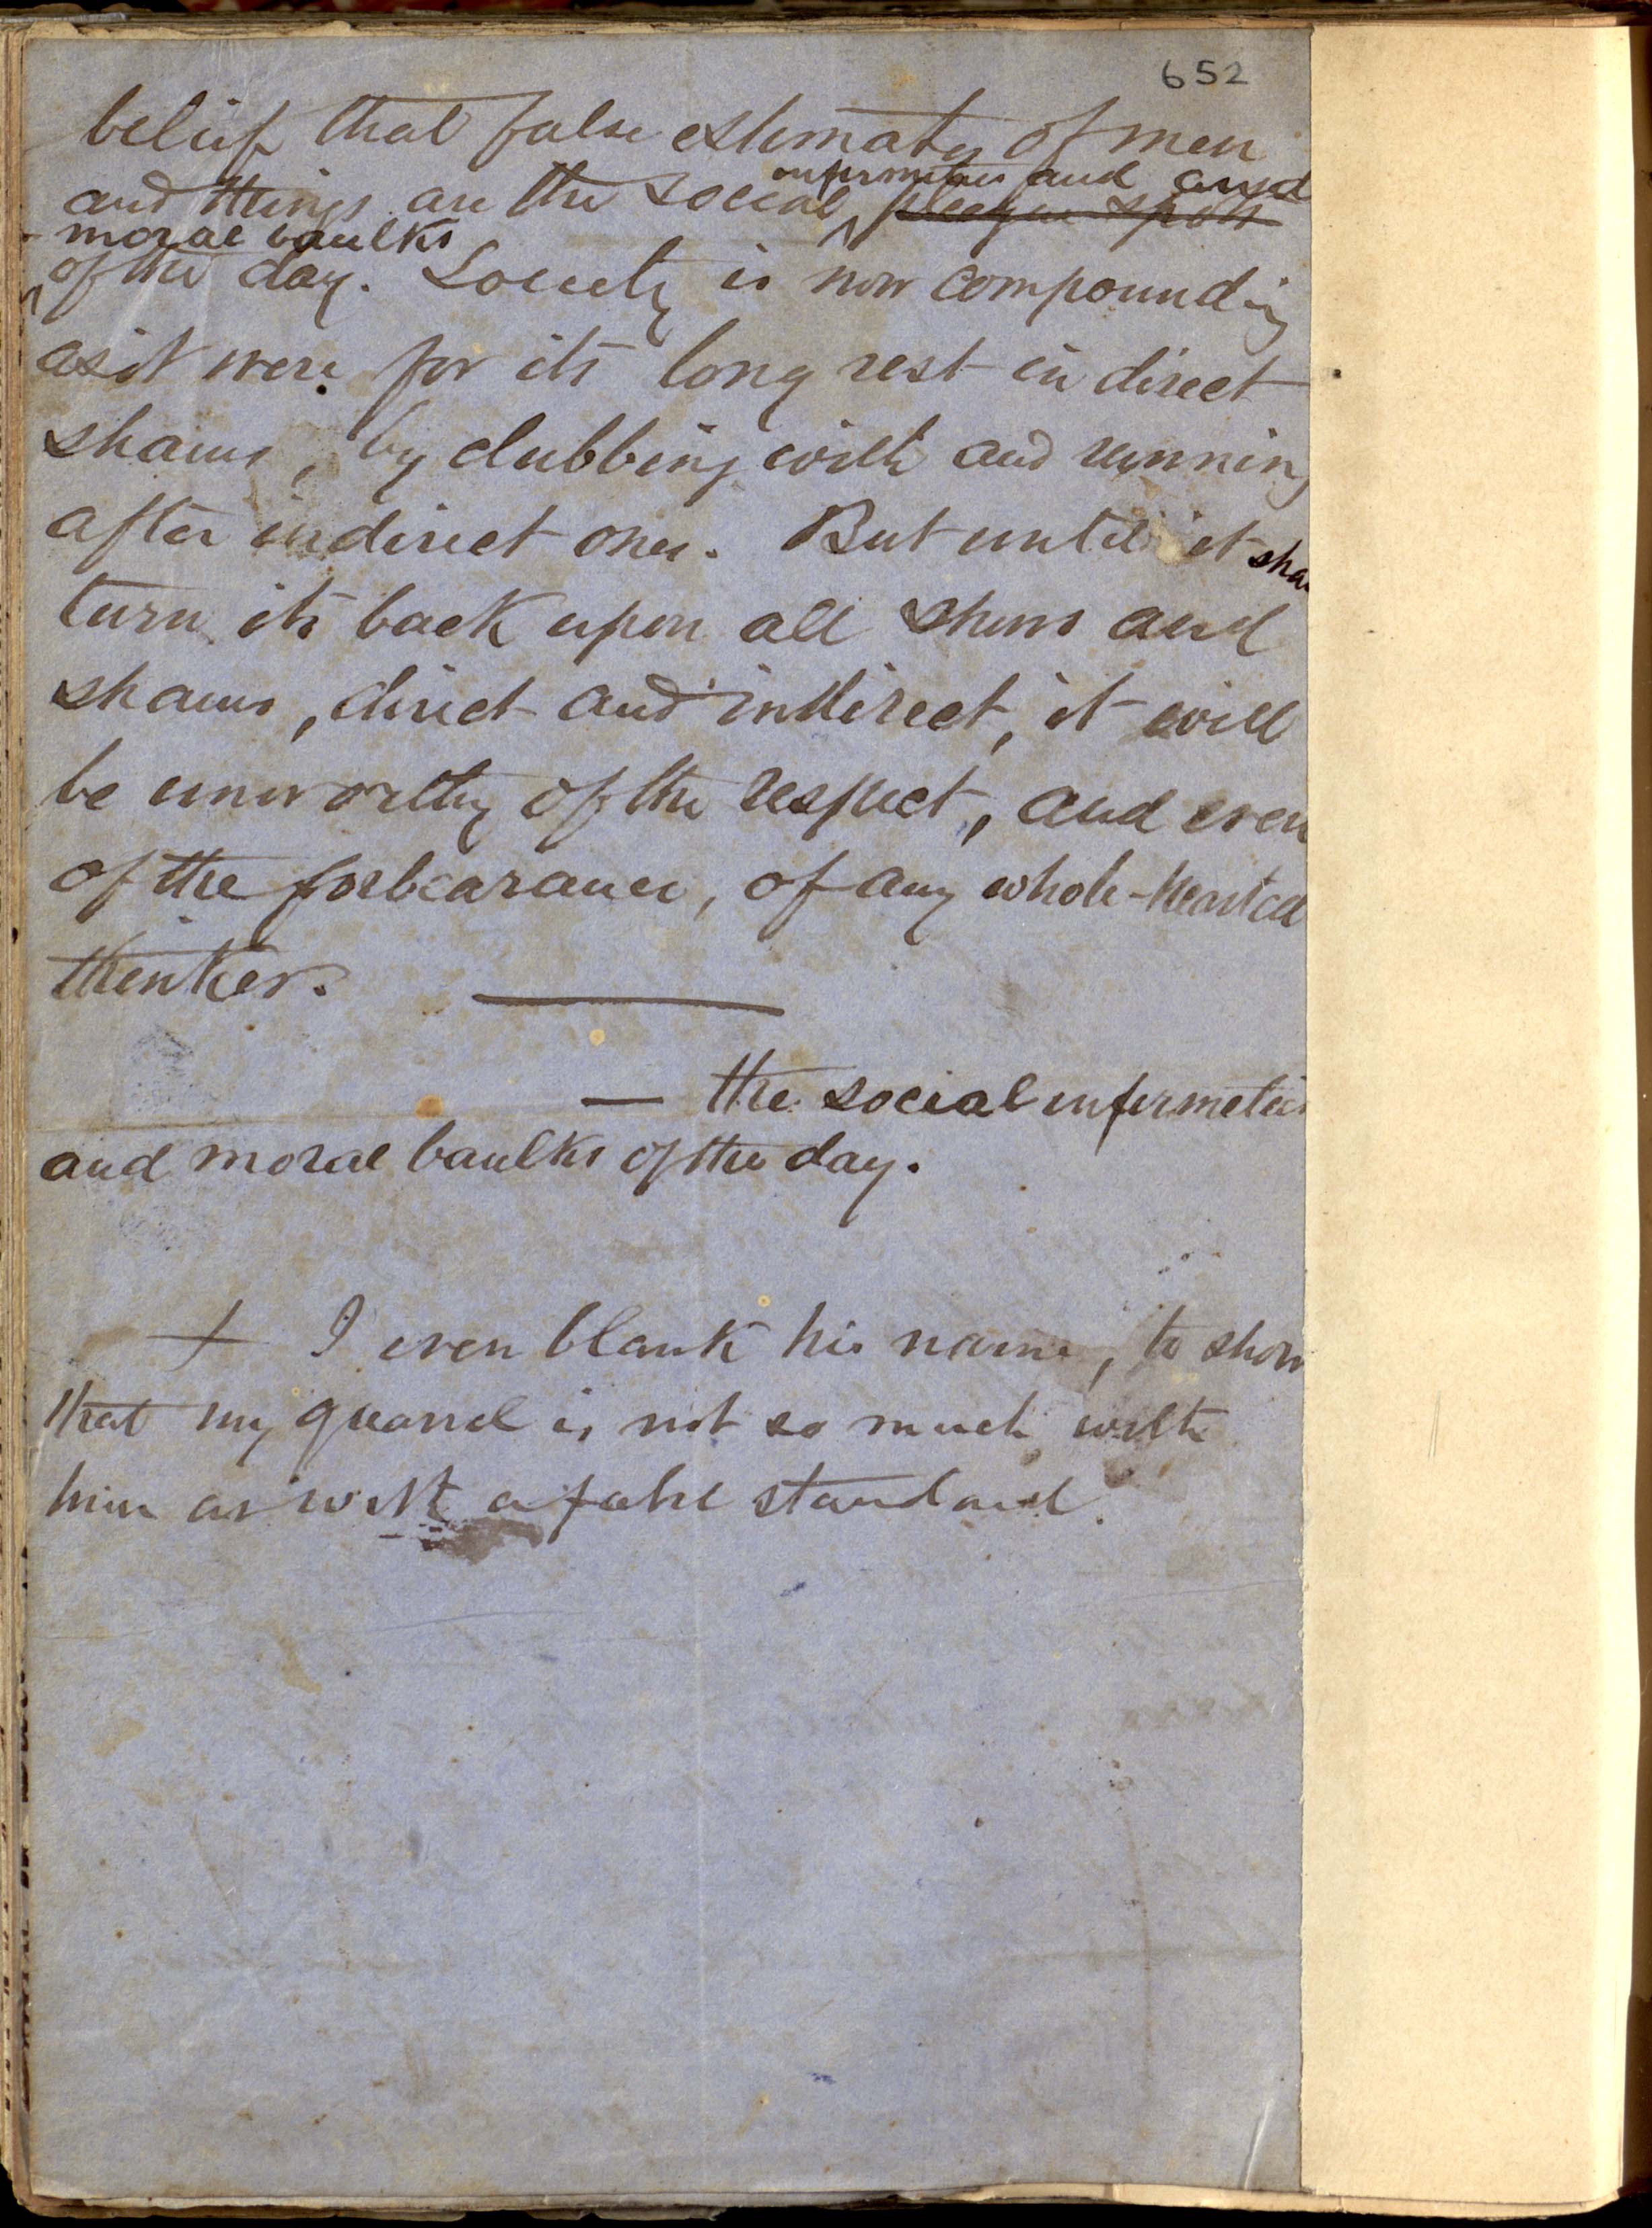 652
belief that false estimates of men
infirmities and and
and things are the social plague spots
moral baulks
of the day. Society is now compounding
as it were for its long rest in direct
shams, by clubbing with and running
after indirect ones. But until it sha
turn its back upon all shams and
shams, direct and indirect, it will
be unworthy of the respect, and even
of the forbearance, of any whole-hearted
thinker.
— the social infirmities
and moral baulks of the day.
+ I even blank his name, to show
that my quarrel is not so much with
him as with a false standard.